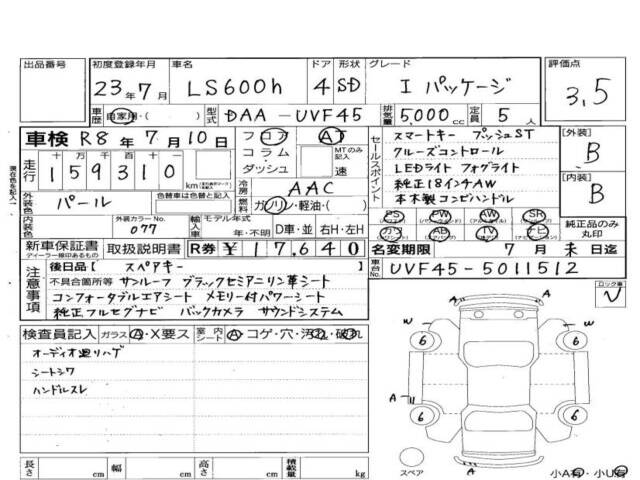 出品番号
初度登録年月 車名 ドア 形状 グレード 評価点
23年7月 LS600h 4 SD I パッケージ 3.5
車歴 自家用・( ) 型式 DAA-UVF45 排気量 5,000cc 定員 5人
車検 R8年7月10日
フロア AT
コラム MTのみ記入
ダッシュ 速
走行 十万 万 千 百 十 一
159310 km
セールスポイント
スマートキー プッシュST
クルーズコントロール
LEDライト フォグライト
純正18インチAW
本木製コンビハンドル
PS PW AW SR
カワ AB TV ナビ
【外装】
B
【内装】
B
純正品のみ丸印
冷房 AAC
燃料 ガソリン・軽油・( )
外装色 パール 色替車は色替と記入
内装色 外装カラーNo. 077 輸入車 モデル年式 年・不明 D車・並 右H・左H
新車保証書 取扱説明書 R券 ¥117,640
ディーラー捺印あるもの
名変期限 7月末日迄
車台No. UVF45-5011512
注意事項
後日品【 スペアキー 】
不具合箇所等 サンルーフ ブラックセミアニリン革シート
コンフォータブルエアシート メモリー付パワーシート
純正フルセグナビ バックカメラ サウンドシステム
検査員記入 ガラス A・X要ス 室内シート A・コゲ・穴・汚れ・破れ
オーディオ廻りハゲ
シートシワ
ハンドルスレ
A
W W
6 6
A
6 6
A
A
スペア
小A有・小U有
長さ cm 幅 cm 高さ cm 積載量 kg